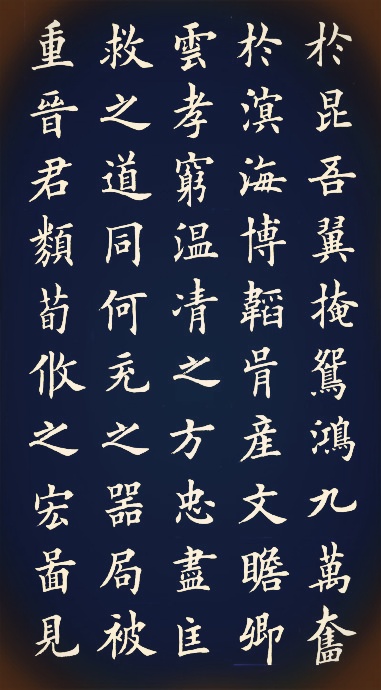 於昆吾翼掩鴛鴻九萬奮
於溟海博韜胥産文瞻卿
雲孝窮温凊之方忠盡匡
救之道同何充之器局被
重晉君類荀攸之宏啚見